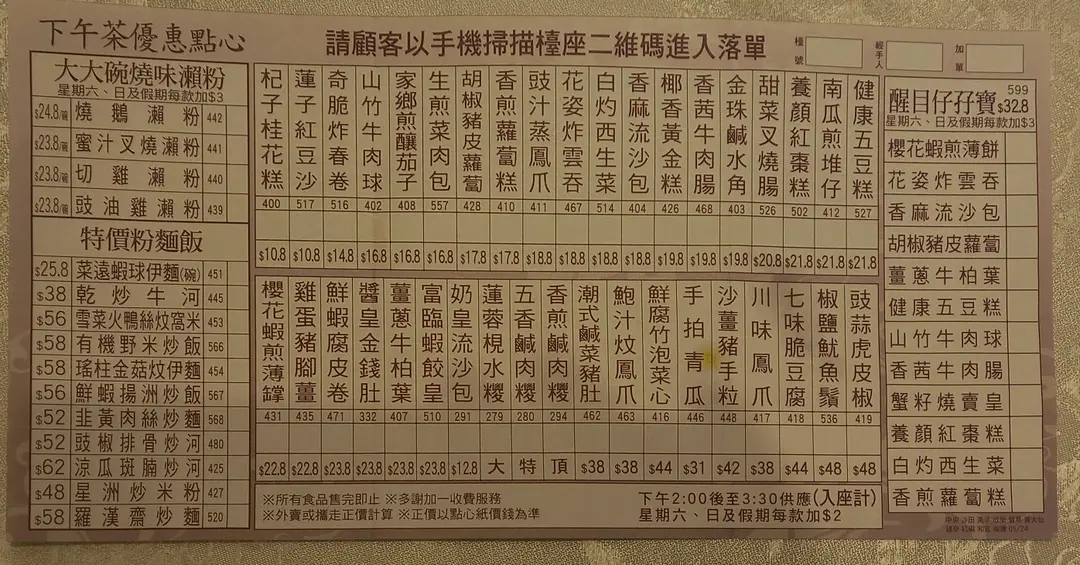 下午茶優惠點心
請顧客以手機掃描檯座二維碼進入落單
檯號
經手人
加單
大大碗燒味瀨粉
星期六、日及假期每款加$3
$24.8/碗 燒鵝瀨粉 442
$23.8/碗 蜜汁叉燒瀨粉 441
$23.8/碗 切雞瀨粉 440
$23.8/碗 豉油雞瀨粉 439
特價粉麵飯
$25.8 菜遠蝦球伊麵(碗) 451
$38 乾炒牛河 445
$56 雪菜火鴨絲炆窩米 453
$58 有機野米炒飯 566
$58 瑤柱金菇炆伊麵 454
$56 鮮蝦揚洲炒飯 567
$52 韭黃肉絲炒麵 568
$52 豉椒排骨炒河 480
$62 涼瓜斑腩炒河 425
$48 星洲炒米粉 427
$58 羅漢齋炒麵 520
杞子桂花糕 400 $10.8
蓮子紅豆沙 517 $10.8
奇脆炸春卷 516 $14.8
山竹牛肉球 402 $16.8
家鄉煎釀茄子 408 $16.8
生煎菜肉包 557 $16.8
胡椒豬皮蘿蔔 428 $17.8
香煎蘿蔔糕 410 $17.8
豉汁蒸鳳爪 411 $17.8
花姿炸雲吞 467 $18.8
白灼西生菜 514 $18.8
香麻流沙包 404 $18.8
椰香黃金糕 426 $19.8
香茜牛肉腸 468 $19.8
金珠鹹水角 403 $19.8
甜菜叉燒腸 526 $20.8
養顏紅棗糕 502 $21.8
南瓜煎堆仔 412 $21.8
健康五豆糕 527 $21.8
櫻花蝦煎薄撑 431 $22.8
雞蛋豬腳薑 435 $22.8
鮮蝦腐皮卷 471 $23.8
醬皇金錢肚 332 $23.8
薑蔥牛柏葉 407 $23.8
富臨蝦餃皇 510 $23.8
奶皇流沙包 291 $12.8
蓮蓉梘水糭 279 大
五香鹹肉糭 280 特
香煎鹹肉糭 294 頂
潮式鹹菜豬肚 462 $38
鮑汁炆鳳爪 463 $38
鮮腐竹泡菜心 416 $44
手拍青瓜 446 $31
沙薑豬手粒 448 $42
川味鳳爪 417 $38
七味脆豆腐 418 $44
椒鹽魷魚鬚 536 $48
豉蒜虎皮椒 419 $48
※所有食品售完即止 ※多謝加一收費服務
※外賣或攜走正價計算 ※正價以點心紙價錢為準
下午2:00後至3:30供應(入座計)
星期六、日及假期每款加$2
599
醒目仔孖寶 $32.8
星期六、日及假期每款加$3
櫻花蝦煎薄餅
花姿炸雲吞
香麻流沙包
胡椒豬皮蘿蔔
薑蔥牛柏葉
健康五豆糕
山竹牛肉球
香茜牛肉腸
蟹籽燒賣皇
養顏紅棗糕
白灼西生菜
香煎蘿蔔糕
05/24